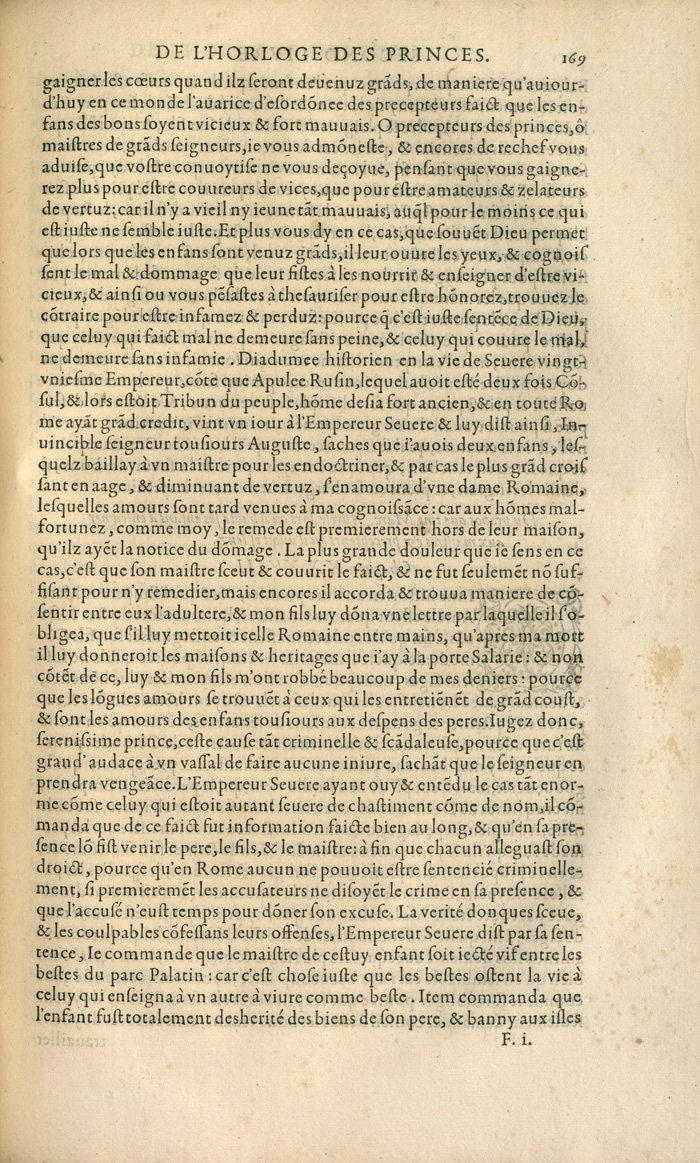 DE L'HORLOGE DES PRINCES. 169
gaigner les cœurs quand ilz ſeront deuenuz grãds, de maniere qu'auiour-
d'huy en ce monde l'auarice d'eſordónee des precepteurs faict que les en-
fans des bons ſoyent vicieux & fort mauuais. O precepteurs des princes, ô
maiſtres de grãds ſeigneurs, ie vous admóneſte, & encores de rechef vous
aduiſe, que voſtre conuoytiſe ne vous deçoyue, penſant que vous gaigne-
rez plus pour eſtre couureurs de vices, que pour eſtre amateurs & zelateurs
de vertuz: car il n'y a vieil ny ieune tãt mauuais, auq̃l pour le moins ce qui
eſt iuſte ne ſemble iuſte. Et plus vous dy en ce cas, que ſouuẽt Dieu permet
que lors que les enfans ſont venuz grãds, il leur ouure les yeux, & cognoiſ
ſent le mal & dommage que leur fiſtes à les nourrir & enſeigner d'eſtre vi-
cieux, & ainſi ou vous pẽſaſtes à theſauriſer pour eſtre hõnorez, trouuez le
cõtraire pour eſtre infamez & perduz: pource q̃ c'eſt iuſte ſentẽce de Dieu,
que celuy qui faict mal ne demeure ſans peine, & celuy qui couure le mal,
ne demeure ſans infamie. Diadumee hiſtorien en la vie de Seuere vingt-
vnieſme Empereur, cõte que Apulee Rufin, lequel auoit eſté deux fois Cõ-
ſul, & lors eſtoit Tribun du peuple, hóme deſia fort ancien, & en toute Ro
me ayãt grãd credit, vint vn iour à l'Empereur Seuere & luy diſt ainſi, In-
uincible ſeigneur touſiours Auguſte, ſaches que i'auois deux enfans, leſ-
quelz baillay à vn maiſtre pour les endoctriner, & par cas le plus grãd croiſ
ſant en aage, & diminuant de vertuz, s'enamoura d'vne dame Romaine,
leſquelles amours ſont tard venues à ma cognoiſſãce: car aux hõmes mal-
fortunez, comme moy, le remede eſt premierement hors de leur maiſon,
qu'ilz ayẽt la notice du dõmage. La plus grande douleur que ie ſens en ce
cas, c'eſt que ſon maiſtre ſceut & couurit le faict, & ne fut ſeulemẽt nõ ſuf-
fiſant pour n'y remedier, mais encores il accorda & trouua maniere de cõ-
ſentir entre eux l'adultere, & mon fils luy dõna vne lettre par laquelle il s'o-
bligea, que s'il luy mettoit icelle Romaine entre mains, qu'apres ma mort
il luy donneroit les maiſons & heritages que i'ay à la porte Salarie: & non
cõtẽt de ce, luy & mon fils m'ont robbé beaucoup de mes deniers: pource
que les lõgues amours ſe trouuẽt à ceux qui les entretiẽnẽt de grãd couſt,
& ſont les amours des enfans touſiours aux deſpens des peres. Iugez donc,
ſereniſſime prince, ceſte cauſe tãt criminelle & ſcãdaleuſe, pource que c'eſt
grand' audace à vn vaſſal de faire aucune iniure, ſachãt que le ſeigneur en
prendra vengeãce. L'Empereur Seuere ayant ouy & entẽdu le cas tãt enor-
me cõme celuy qui eſtoit autant ſeuere de chaſtiment cõme de nom, il cõ-
manda que de ce faict fut information faicte bien au long, & qu'en ſa pre-
ſence lõ fiſt venir le pere, le fils, & le maiſtre: à fin que chacun alleguaſt ſon
droict, pource qu'en Rome aucun ne pouuoit eſtre ſentencié criminelle-
ment, ſi premieremẽt les accuſateurs ne diſoyẽt le crime en ſa preſence, &
que l'accuſé n'euſt temps pour dõner ſon excuſe. La verité donques ſceue,
& les coulpables cõfeſſans leurs offenſes, l'Empereur Seuere diſt par ſa ſen-
tence, Ie commande que le maiſtre de ceſtuy enfant ſoit iecté vif entre les
beſtes du parc Palatin: car c'eſt choſe iuſte que les beſtes oſtent la vie à
celuy qui enſeigna à vn autre à viure comme beſte. Item commanda que
l'enfant fuſt totalement desherité des biens de ſon pere, & banny aux iſles
F. i.